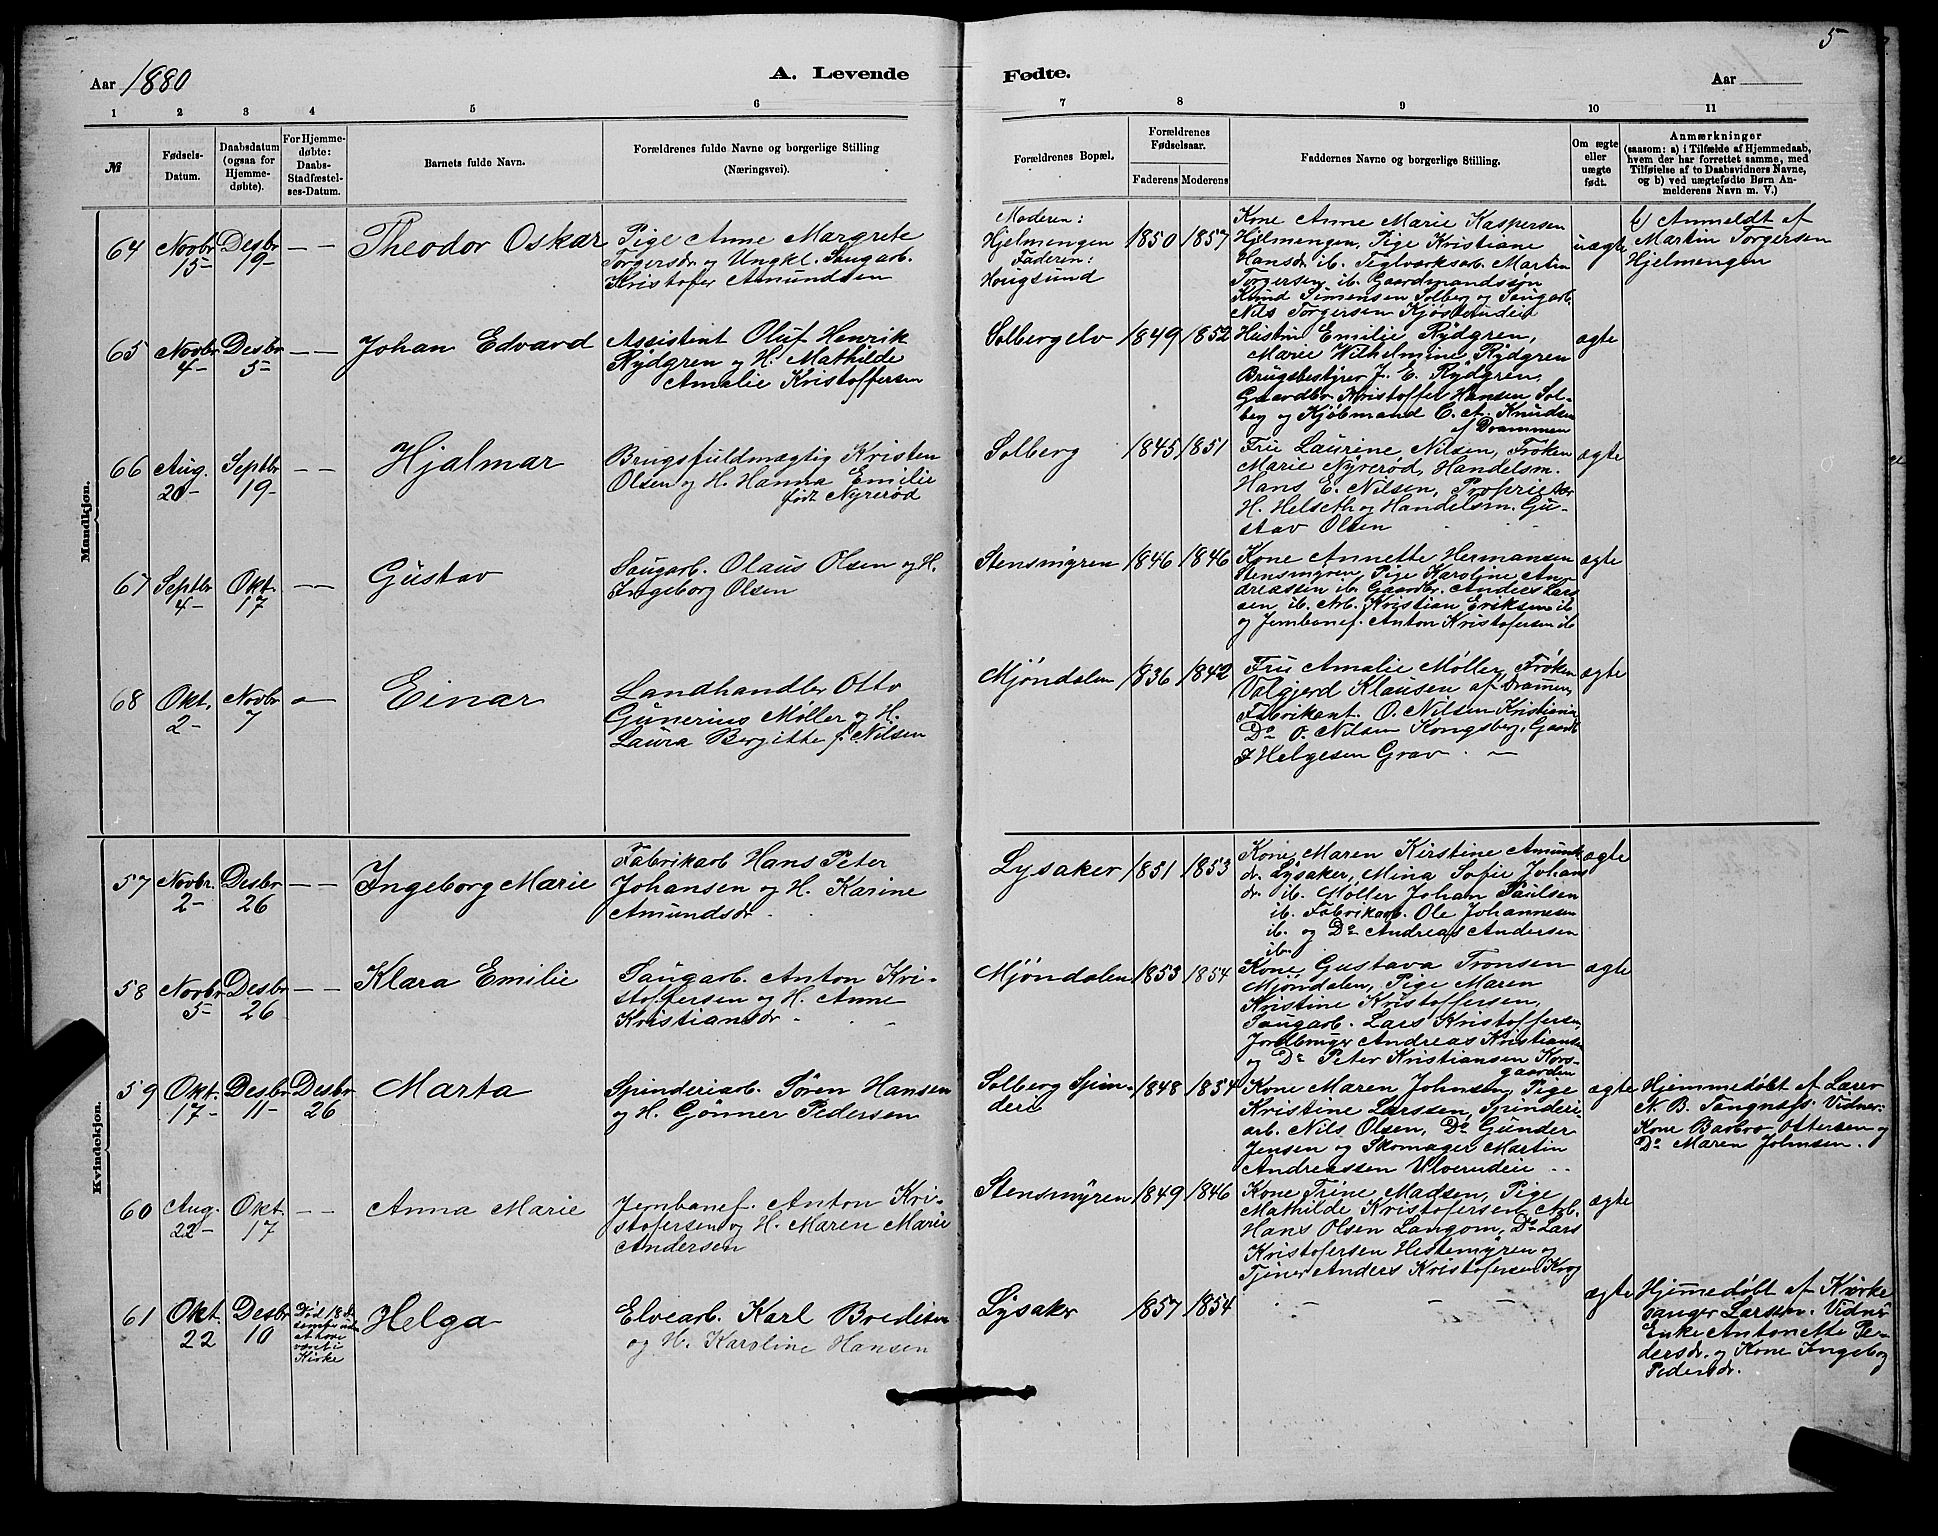 5
Aar 1880
A. Levende
Fødte.
Aar
1 2 3 4 5 6 7 8 9 10 11
№
Fødsels-
Datum.
Daabsdatum
(ogsaa for
Hjemme-
døbte).
For Hjemme-
døbte:
Daabs-
Stadfæstel-
ses-Datum.
Barnets fulde Navn.
Forældrenes fulde Navne og borgerlige Stilling
(Næringsvei).
Forældrenes Bopæl.
Forældrenes
Fødselsaar.
Faderens Moderens
Faddernes Navne og borgerlige Stilling.
Om ægte
eller
uægte
født.
Anmærkninger
(saasom: a) i Tilfælde af Hjemmedaab,
hvem der har forrettet samme, med
Tilføielse af to Daabsvidners Navne,
og b) ved uægtefødte Børn An-
melderens Navn m. V.)
Mandkjøn.
64
Novbr
15
Desbr
19
Theodor Oskar
Pige Anne Margrete
Torgersdr og Ungkl. Saugarb.
Kristofer Amundsen
Moderen:
Hjelmengen
Faderen:
Hougsund
1850 1857
Kone Anne Marie Kaspersen
Hjelmengen, Pige Kristiane
Hansdr ib. Teglværksarb. Martin
Torgersen ib. Gaardmandssøn
Knud Simensen Solberg og Saugarb.
Nils Torgersen Kjøsterudei
uægte
b) Anmeldt af
Martin Torgersen
Hjelmengen
65
Novbr
4
Desbr
5
Johan Edvard
Assistent Oluf Henrik
Rydgren og H. Mathilde
Amalie Kristoffersen
Solbergelv
1849 1852
Hustru Emilie Rydgren,
Marie Wilhelmine Rydgren
Brugsbestyrer J. E. Rydgren,
Gaardbr Kristoffer Hansen Sol-
berg og Kjøbmand C. A. Knudsen
af Drammen
ægte
66
Aug.
20
Septbr
19
Hjalmar
Brugsfuldmægtig Kristen
Olsen og H. Hanna Emilie
født Nyrerød
Solberg
1845 1851
Fru Laurine Nilsen, Frøken
Marie Nyrerød, Handelsm.
Hans E. Nilsen, Proprietær
H. Helseth og Handelsm. Gu-
stav Olsen
ægte
67
Septbr
4
Okt.
17
Gustav
Saugarb. Olaus Olsen og H.
Ingeborg Olsen
Stensmyren
1846 1846
Kone Annette Hermansen
Stensmyren, Pige Karoline An-
dreassen ib. Gaardbr. Anders Lars
sen ib. Arb. Kristian Eriksen ib
og Jernbanef. Anton Kristofersen ib
ægte
68
Okt.
2
Novbr
7
Einar
Landhandler Otto
Gunerius Møller og H.
Laura Bergitte f. Nilsen
Mjøndalen
1836 1842
Fru Amalie Møller, Frøken
Valgjerd Klausen af Drammen,
Fabrikant O. Nilsen Kristiania
Do O. Nilsen Kongsberg, Gaardb
J Helgesen Grav
ægte
Kvindekjøn.
57
Novbr.
2
Desbr
26
Ingeborg Marie
Fabrikarb Hans Peter
Johansen og H. Karine
Amundsdr
Lysaker
1851 1853
Kone Maren Kirstine Amunds
dr. Lysaker, Mina Sofie Johans
dr ib. Møller Johan Paulsen
ib. Fabrikarb. Ole Johannesen
ib. og Do Andreas Andersen
ib.
ægte
58
Novbr
5
Desbr
26
Klara Emilie
Saugarb. Anton Kri-
stoffersen og H. Anne
Kristiansdr
Mjøndalen
1853 1854
Kone Gustava Tronsen
Mjøndalen, Pige Maren
Kristine Kristoffersen,
Saugarb. Lars Kristoffersen,
Jordbruger Andreas Kristiansen
og Do Peter Kristiansen Kors-
gaarden
ægte
59
Okt.
17
Desbr
11
Desbr
26
Marta
Spinderiarb. Søren Hansen
og H. Gønner Pedersen
Solberg Spin-
deri
1848 1854
Kone Maren Johnsen, Pige
Kristine Larssen, Spinderi
arb. Nils Olsen, Do Gunder
Jensen og Skomager Martin
Andreassen Ulverudeie
ægte
Hjemmedøbt af Lærer
N. B. Tangnæs. Vidner:
Kone Barbro Ottersen og
Do Maren Johnsen.
60
Aug.
22
Okt.
17
Anna Marie
Jernbanef. Anton Kri-
stofersen og H. Maren Marie
Andersen
Stensmyren
1849 1846
Kone Trine Madsen, Pige
Mathilde Kristofersen, Arb.
Hans Olsen Langom, Do Lars
Kristofersen Hestemyren og
Tjener Anders Kristofersen Krog
ægte
61
Okt.
22
Desbr
10
Død 18de
uden
at have
været i
Kirke
Helga
Elvearb. Karl Bredesen
og H. Karoline Hansen
Lysaker
1857 1854
ægte
Hjemmedøbt af Kirke
sanger Larssen. Vidner
Enke Antonette Pe-
dersdr. og Kone Ingeborg
Pedersdr.